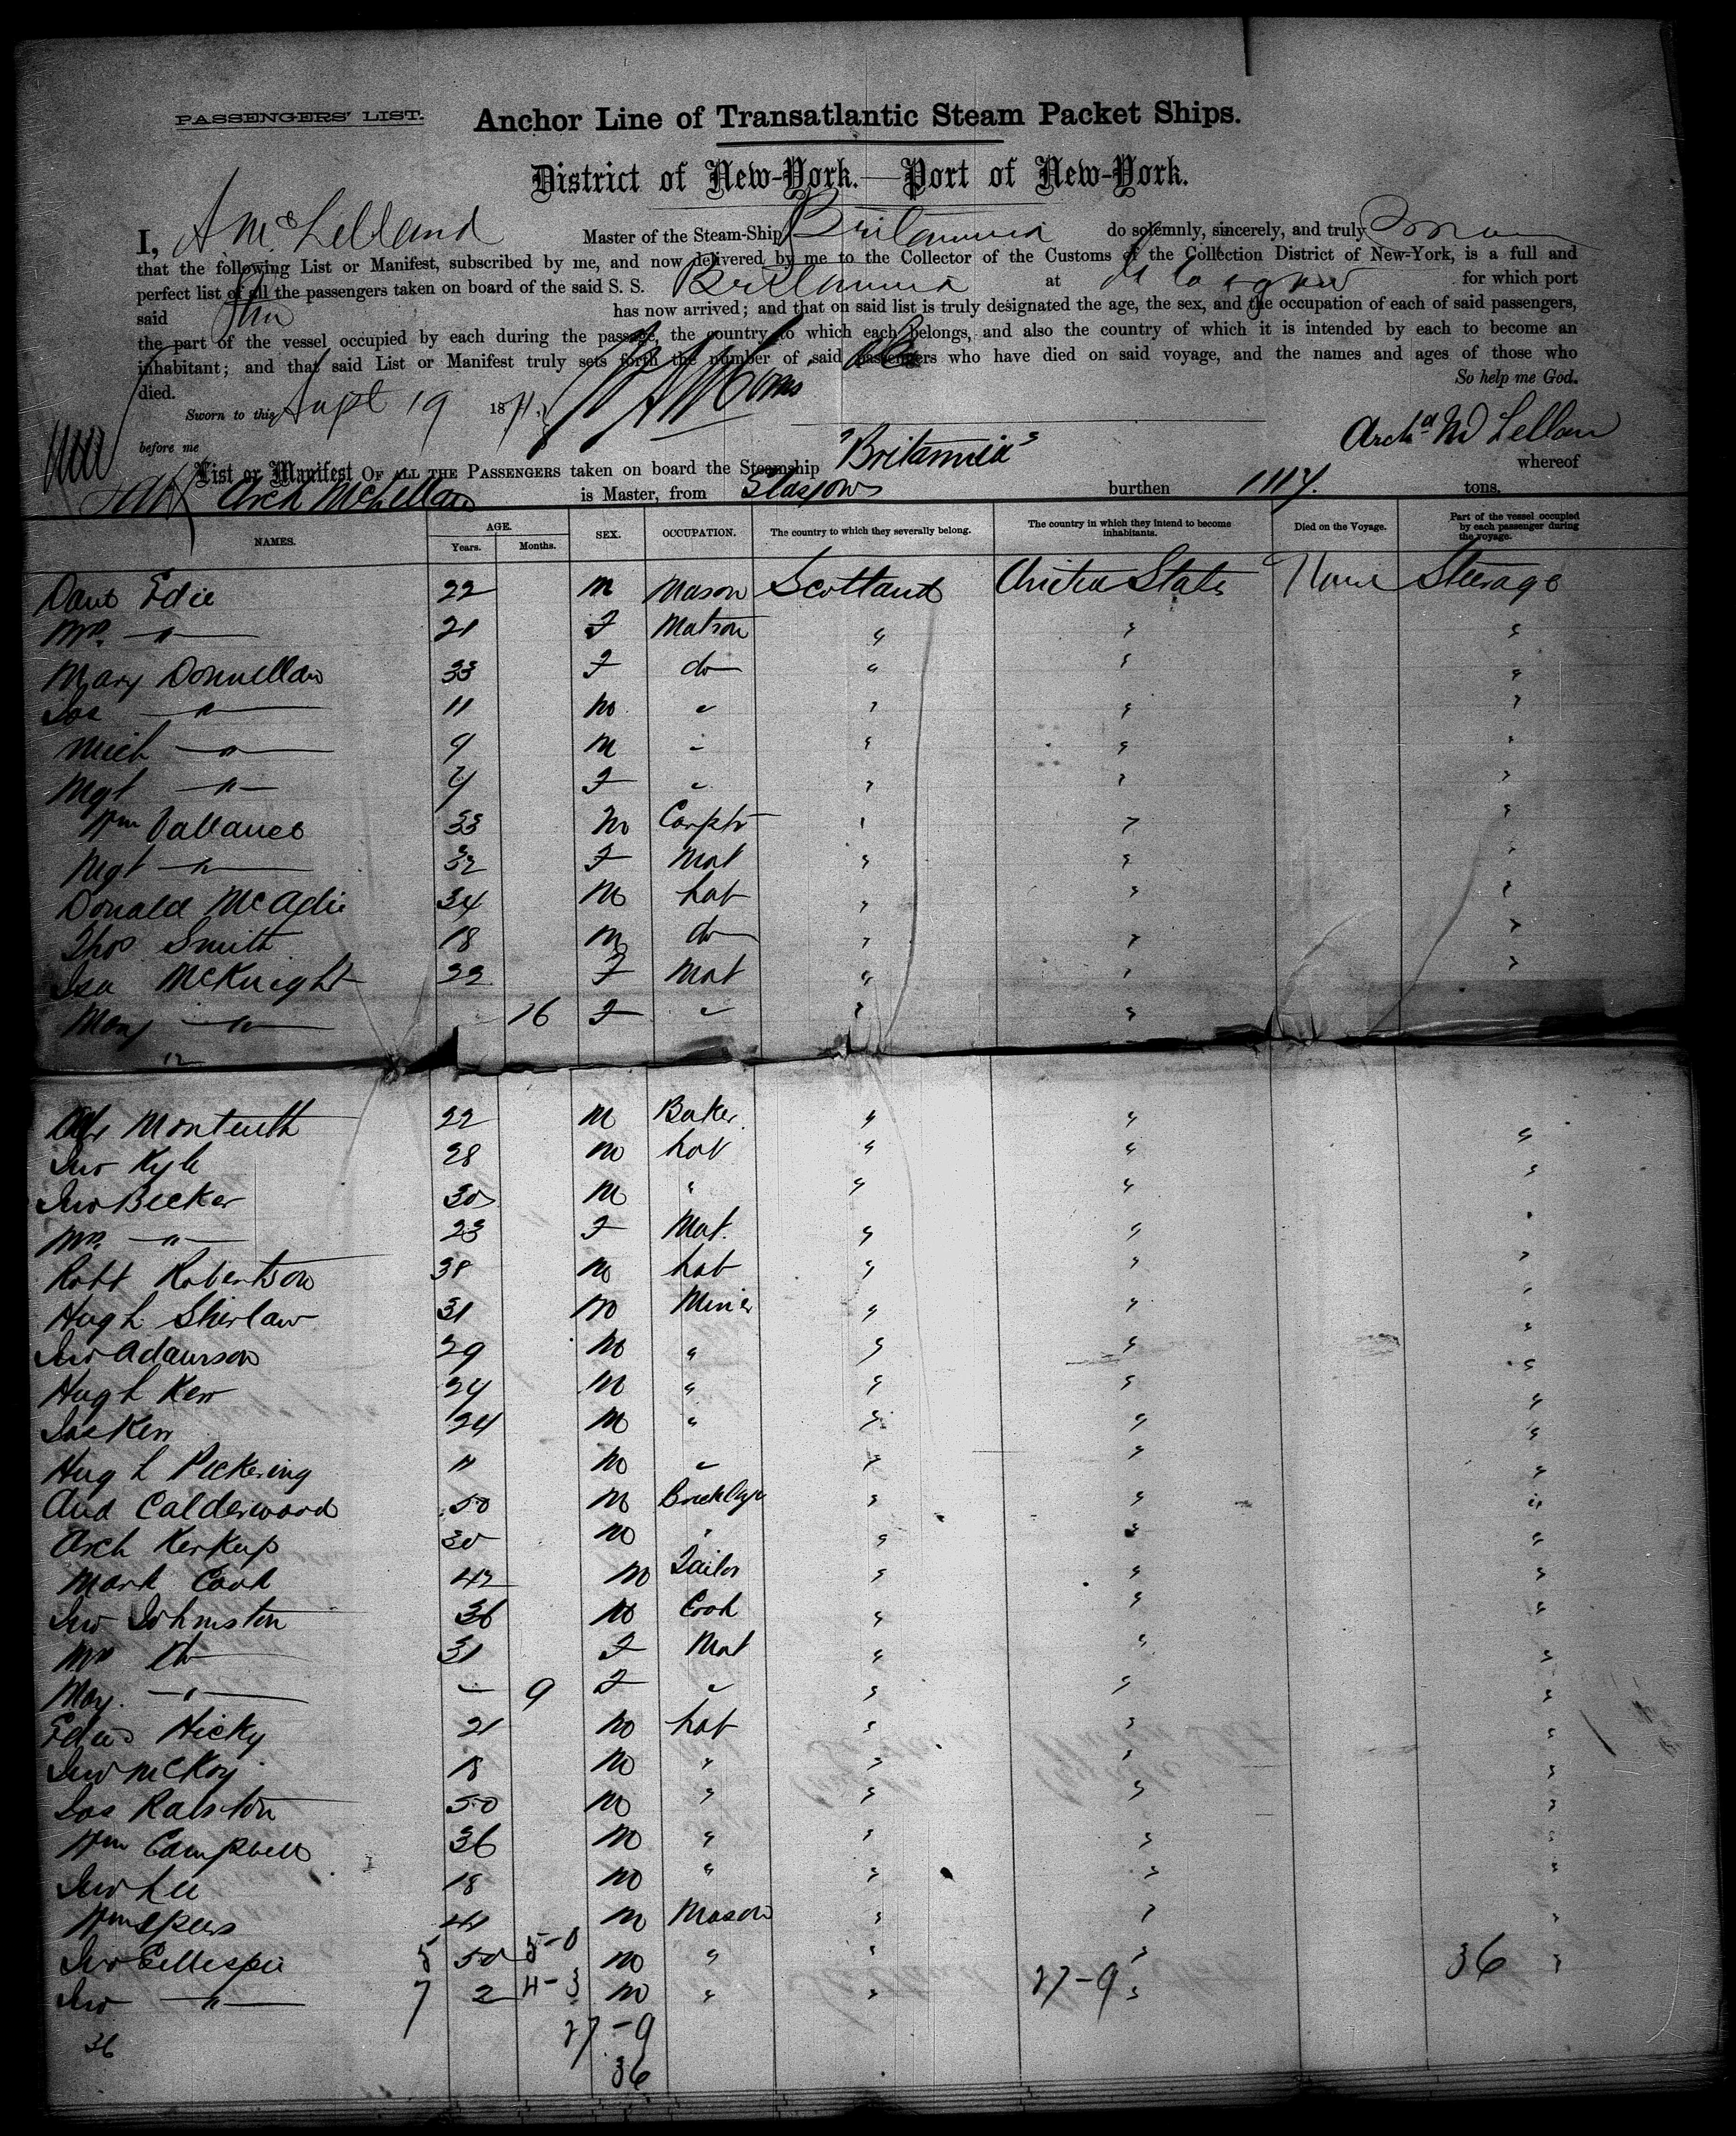 PASSENGERS' LIST.
Anchor Line of Transatlantic Steam Packet Ships.
District of New-York.—Port of New-York.
I, A McLelland Master of the Steam-Ship Britannia do solemnly, sincerely, and truly
that the following List or Manifest, subscribed by me, and now delivered by me to the Collector of the Customs of the Collection District of New-York, is a full and
perfect list of all the passengers taken on board of the said S. S. Britannia at Glasgow for which port
said Ship has now arrived; and that on said list is truly designated the age, the sex, and the occupation of each of said passengers,
the part of the vessel occupied by each during the passage, the country to which each belongs, and also the country of which it is intended by each to become an
inhabitant; and that said List or Manifest truly sets forth the number of said passengers who have died on said voyage, and the names and ages of those who
died. So help me God.
Sworn to this Sept 19 1871,
before me Archd McLellan
List or Manifest OF ALL THE PASSENGERS taken on board the Steamship "Britannia" whereof
Arch McLellan is Master, from Glasgow burthen 1114. tons.
NAMES. AGE. Years. Months. SEX. OCCUPATION. The country to which they severally belong. The country in which they intend to become inhabitants. Died on the Voyage. Part of the vessel occupied by each passenger during the voyage.
Davd Edie 22 M Mason Scotland United States None Steerage
Mrs " 21 F Matron " " "
Mary Donnellan 33 F do " " "
Jas " 11 M " " " "
Mich " 9 M " " " "
Mgt " 4 F " " " "
Wm Vallance 33 M Carptr " " "
Mgt " 32 F Mat " " "
Donald McAdie 34 M Lab " " "
Thos Smith 18 M do " " "
Isa McKnight 22 F Mat " " "
Mary " 16 F " " "
12
Alex Monteith 22 M Baker " " "
Jno Kyle 28 M Lab " " "
Jno Becker 30 M " " " "
Mrs " 23 F Mat. " " "
Robt Robertson 38 M Lab " " "
Hugh Shirlaw 31 M Miner " " "
Jno Adamson 29 M " " " "
Hugh Kerr 24 M " " " "
Jas Kerr 24 M " " " "
Hugh Pickering " M " " " "
And Calderwood 50 M Bricklayr " " "
Arch Kerkup 30 M " " " "
Mark Cook 42 M Tailor " " "
Jno Johnston 36 M Cook " " "
Mrs do 31 F Mat " " "
May. " - 9 F " " " "
Edwd Hicky 21 M Lab " " "
Jno McKoy 18 M " " " "
Jas Ralston 50 M " " " "
Wm Campbell 36 M " " " "
Jno Lee 18 M " " " "
Wm Speirs 41 M Mason " " "
Jno Gillespie 5 50 5-0 M " " " 36 "
Jno " 7 2 4-3 M " " 27-9 "
36 27-9
36